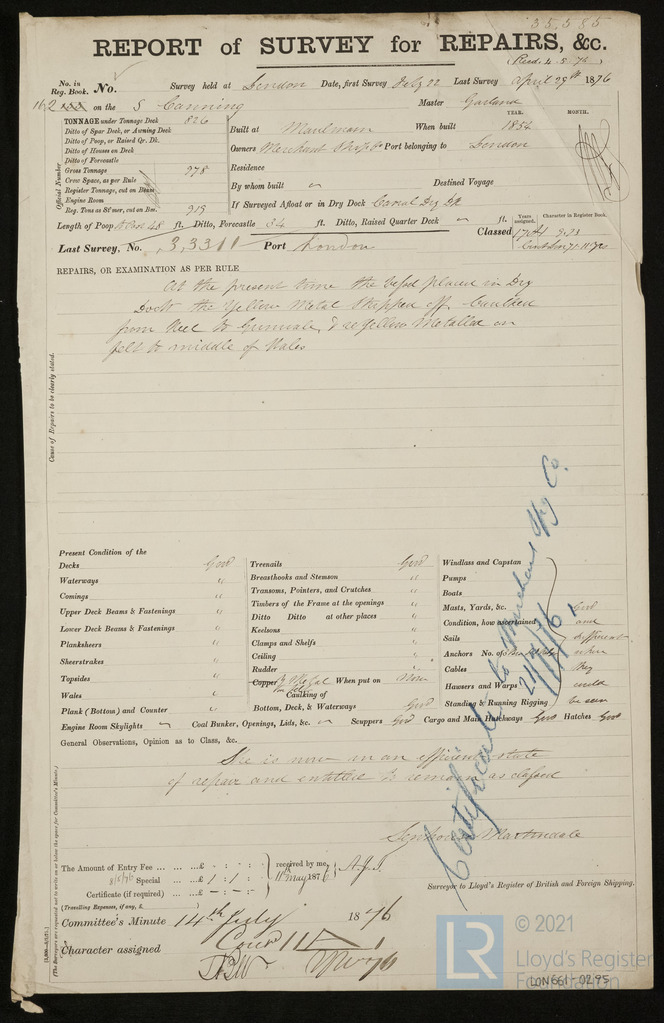 35385
REPORT of SURVEY for REPAIRS, &c.
(Recd 4.5.76)
No. in Reg. Book. No. Survey held at London Date, first Survey Feby 22 Last Survey April 29th 1876
162 on the S Canning Master Garland
TONNAGE under Tonnage Deck 826
Ditto of Spar Deck, or Awning Deck
Ditto of Poop, or Raised Qr. Dk.
Ditto of Houses on Deck
Ditto of Forecastle
Gross Tonnage 978
Crew Space, as per Rule
Register Tonnage, cut on Beam
Engine Room
Reg. Tons as St'mer, cut on Bm. 919
Official Number
YEAR. MONTH.
Built at Maulmain When built 1854
Owners Merchant Shipg Co Port belonging to London
Residence
By whom built " Destined Voyage
If Surveyed Afloat or in Dry Dock Canal Dry Dk
Length of Poop 48 ft. Ditto, Forecastle 34 ft. Ditto, Raised Quarter Deck " ft.
Years assigned. Character in Register Book.
Classed
Last Survey, No. 33311 Port London
REPAIRS, OR EXAMINATION AS PER RULE
At the present time the vessel placed in Dry
Dock the Yellow Metal stripped off, Caulked
from Keel to Gunwale, & reyellow Metalled on
felt to middle of Wales
Cause of Repairs to be clearly stated.
Present Condition of the
Decks Good
Waterways "
Comings "
Upper Deck Beams & Fastenings "
Lower Deck Beams & Fastenings "
Planksheers "
Sheerstrakes "
Topsides "
Wales "
Plank (Bottom) and Counter "
Treenails Good
Breasthooks and Stemson "
Transoms, Pointers, and Crutches "
Timbers of the Frame at the openings "
Ditto Ditto at other places "
Keelsons "
Clamps and Shelfs "
Ceiling "
Rudder "
Copper Y Metal on felt When put on Now
Caulking of
Bottom, Deck, & Waterways Good
Windlass and Capstan
Pumps
Boats
Masts, Yards, &c. Good
Condition, how ascertained and
Sails efficient
Anchors No. of when
Cables they
Hawsers and Warps could
Standing & Running Rigging be seen
Engine Room Skylights " Coal Bunker, Openings, Lids, &c. " Scuppers Good Cargo and Main Hatchways Good Hatches Good
Certificate to Merchant Shg Co
General Observations, Opinion as to Class, &c.
She is now in an efficient state
of repair and entitled to remain as classed
Senhouse Martindale
Surveyor to Lloyd's Register of British and Foreign Shipping.
The Amount of Entry Fee ... ...£ - : - : -
8/5/76 Special ... ...£ 1 : 1 : -
Certificate (if required) ... ...£ - : - : -
received by me,
11th May 1876
(Travelling Expenses, if any, £ )
Committee's Minute 14th July 1876
Character assigned
(The Surveyors are requested not to write on or below the space for Committee's Minute.)
LR
© 2021
Lloyd's Register
Foundation
LON661-0295